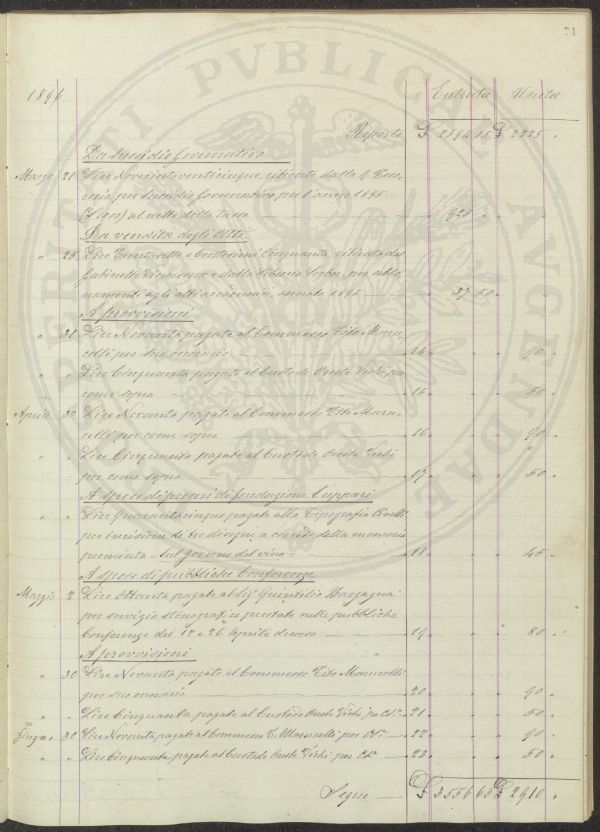 71
1896 Entrata Uscita
Riporto £ 2594 15 £ 2225 "
Da sussidio Governativo
Marzo 21 Lire Novecentoventicinque, ritirate dalla R. Teso
reria, per sussidio Governativo, per l'anno 1895
al netto della tassa 925 "
Da vendita degli Atti
" 25 Lire Trentasette e Centesimi Cinquanta, ritirate dal
Gabinetto Vieusseux e dalla Libreria per abbo
namenti agli atti accademici, annata 1895 37 50
A provvisioni
" 31 Lire Novanta pagate al Commesso Tito Maru
celli per suo onorario 14 " 90 "
" " Lire Cinquanta pagate al Custode Oreste Vichi per
come sopra 15 " 50 "
Aprile 30 Lire Novanta pagate al Commesso Tito Maru
celli per come sopra 16 " 90 "
" " Lire Cinquanta pagate al Custode Oreste Vichi
per come sopra 17 " 50 "
A spese di premi di fondazione Cuppari
" " Lire Quarantacinque pagate alla Tipografia Civelli
per incisione di tre disegni a corredo della memoria
premiata "Sul governo del vino" 18 " 45 "
A spese di pubbliche Conferenze
Maggio 2 Lire Ottanta pagate al Sigr Quintilio Bargagna
per servizio stenografico prestato nelle pubbliche
Conferenze del 17 e 26 Aprile decorso 19 " 80 "
A provvisioni
" 30 Lire Novanta pagate al Commesso Tito Marucelli
per suo onorario 20 " 90 "
" " Lire Cinquanta, pagate al Custode Oreste Vichi per 21 " 50 "
Giugno 30 Lire Novanta pagate al Commesso T. Marucelli per 22 " 90 "
" " Lire Cinquanta pagate al Custode Oreste Vichi per 23 " 50 "
Segue £ 3556 65 £ 2910 "
PVBLICAE AVGENDAE